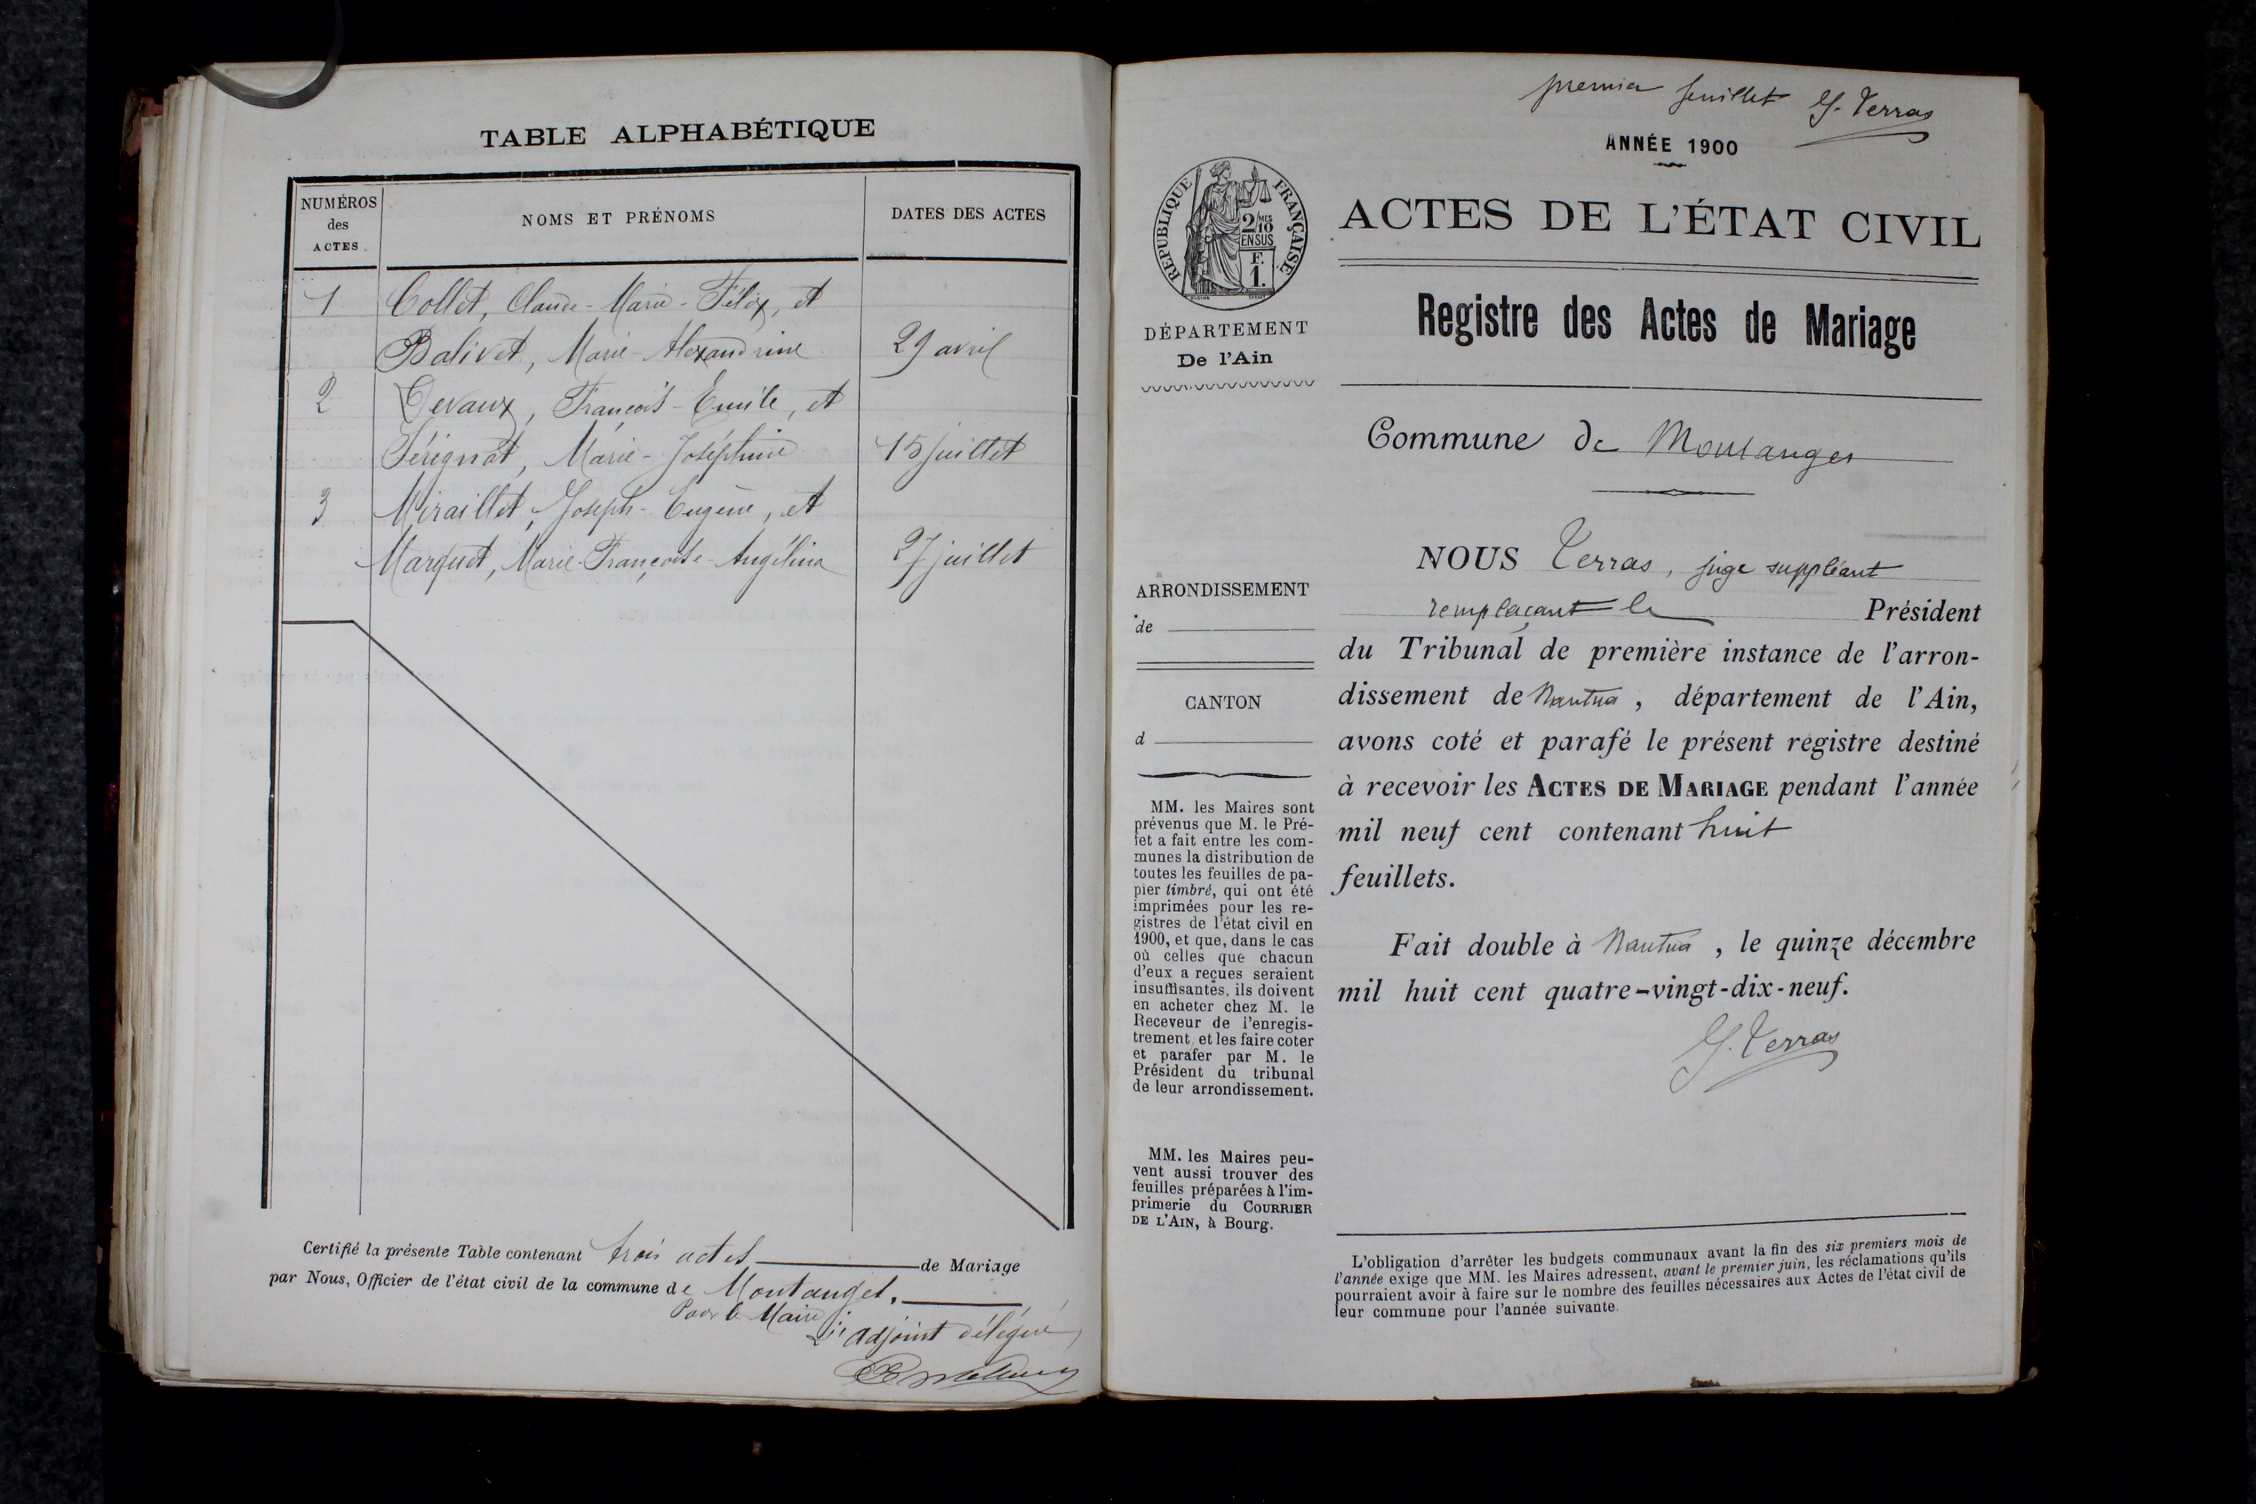 TABLE ALPHABÉTIQUE
NUMÉROS
des
ACTES
NOMS ET PRÉNOMS
DATES DES ACTES
1 Collet, Claude-Marie-Félix, et
Balivet, Marie-Alexandrine 29 avril
2 Devaux, François-Emile, et
Sérignat, Marie-Joséphine 15 juillet
3 Miraillet, Joseph-Eugène, et
Marquet, Marie-Françoise-Angélina 27 juillet
Certifié la présente Table contenant trois actes de Mariage
par Nous, Officier de l'état civil de la commune de Montanges.
Pour le Maire
L'adjoint délégué
premier feuillet G. Terras
ANNÉE 1900
RÉPUBLIQUE FRANÇAISE
2/10MES
EN SUS
F.
1.
DÉPARTEMENT
De l'Ain
ACTES DE L'ÉTAT CIVIL
Registre des Actes de Mariage
Commune de Montanges
ARRONDISSEMENT
de
CANTON
d
MM. les Maires sont
prévenus que M. le Pré-
fet a fait entre les com-
munes la distribution de
toutes les feuilles de pa-
pier timbré, qui ont été
imprimées pour les re-
gistres de l'état civil en
1900, et que, dans le cas
où celles que chacun
d'eux a reçues seraient
insuffisantes, ils doivent
en acheter chez M. le
Receveur de l'enregis-
trement et les faire coter
et parafer par M. le
Président du tribunal
de leur arrondissement.
MM. les Maires peu-
vent aussi trouver des
feuilles préparées à l'im-
primerie du COURRIER
DE L'AIN, à Bourg.
NOUS Terras, juge suppléant
remplaçant le Président
du Tribunal de première instance de l'arron-
dissement de Nantua, département de l'Ain,
avons coté et parafé le présent registre destiné
à recevoir les ACTES DE MARIAGE pendant l'année
mil neuf cent contenant huit
feuillets.
Fait double à Nantua, le quinze décembre
mil huit cent quatre-vingt-dix-neuf.
G. Terras
L'obligation d'arrêter les budgets communaux avant la fin des six premiers mois de
l'année exige que MM. les Maires adressent, avant le premier juin, les réclamations qu'ils
pourraient avoir à faire sur le nombre des feuilles nécessaires aux Actes de l'état civil de
leur commune pour l'année suivante.